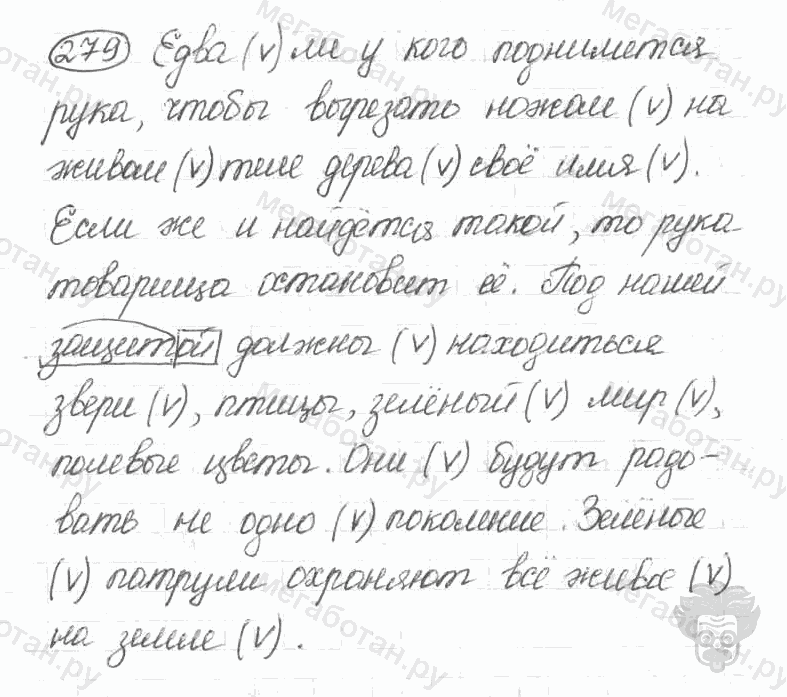 279 Едва (v) ли у кого поднимется
рука, чтобы вырезать ножом (v) на
живом (v) теле дерева (v) своё имя (v).
Если же и найдётся такой, то рука
товарища остановит её. Под нашей
защитой должны (v) находиться
звери (v), птицы, зелёный (v) мир (v),
полевые цветы. Они (v) будут радо-
вать не одно (v) поколение. Зелёные
(v) патрули охраняют всё живое (v)
на земле (v).
мегаботан.ру